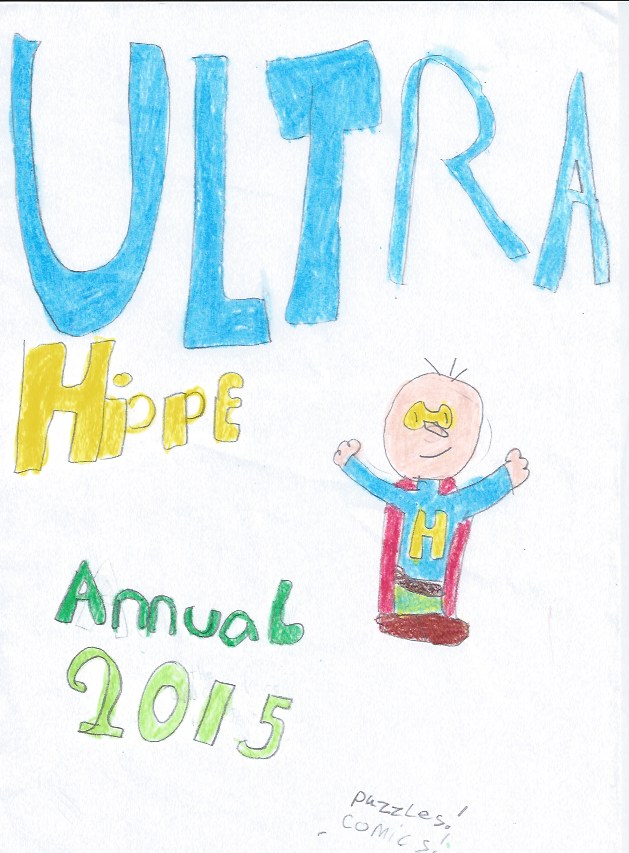 ULTRA
HippE
H
Annual
2015
puzzles!
comics!